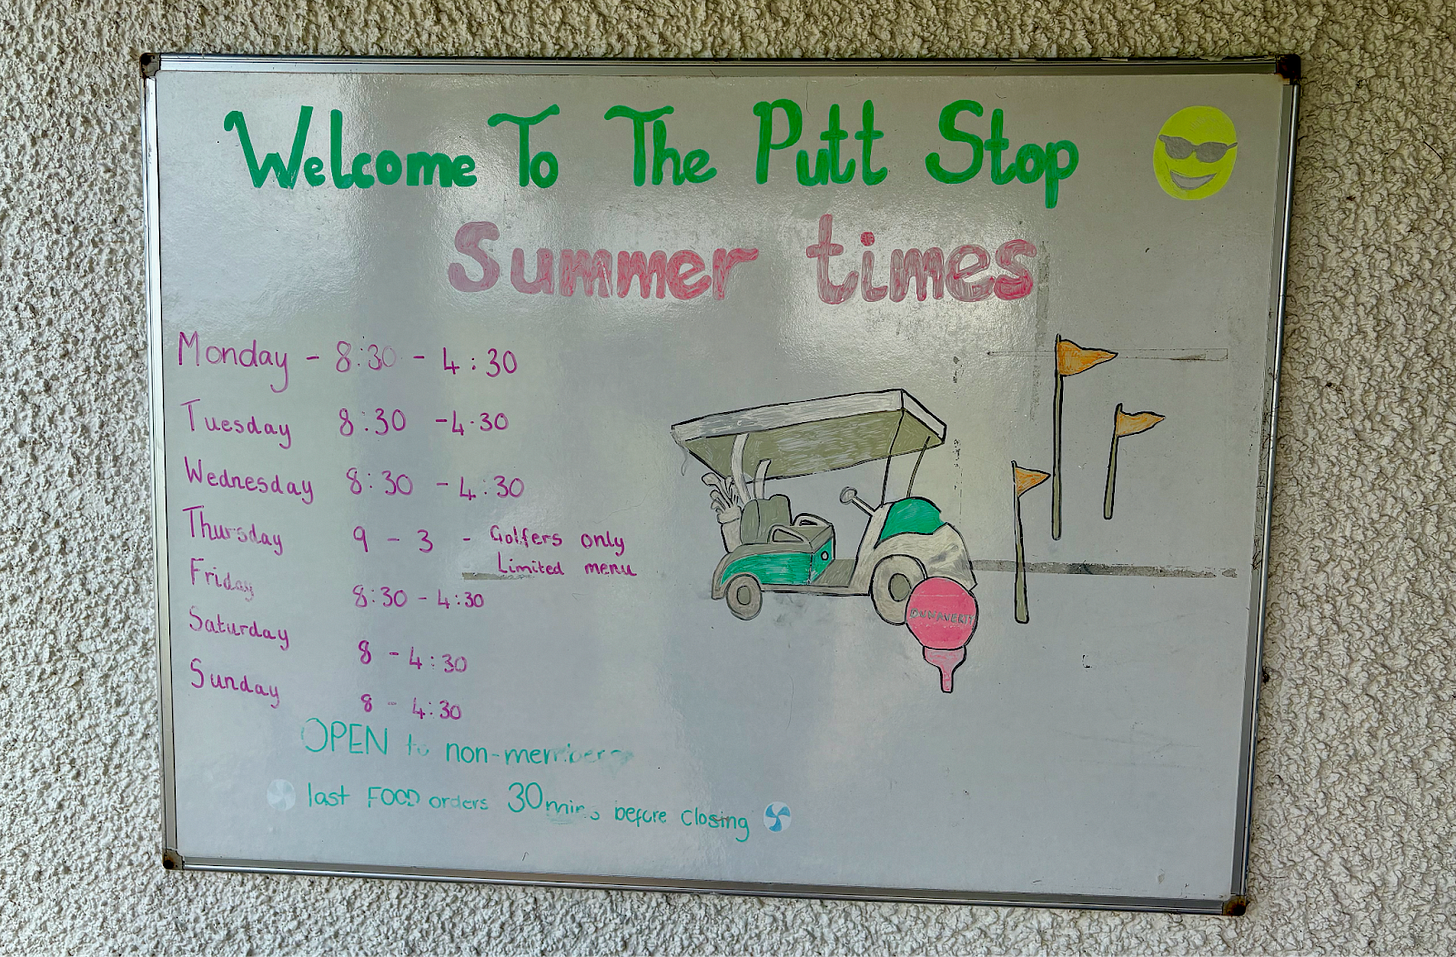 Welcome To The Putt Stop
Summer times
Monday - 8:30 - 4:30
Tuesday 8:30 - 4.30
Wednesday 8:30 - 4:30
Thursday 9 - 3 - Golfers only
Limited menu
Friday 8:30 - 4:30
Saturday 8 - 4:30
Sunday 8 - 4:30
OPEN to non-members
last FOOD orders 30 mins before closing